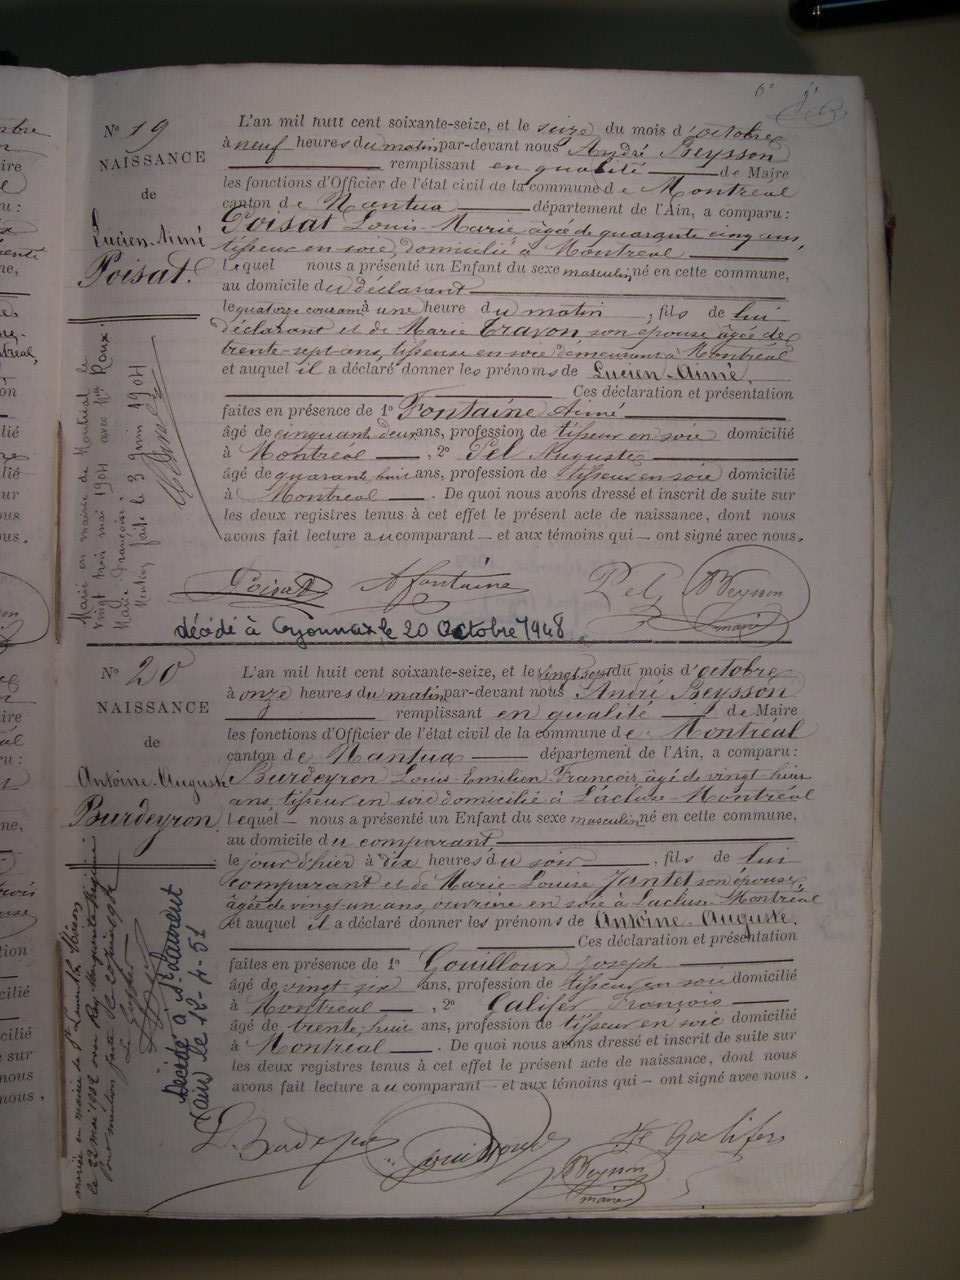 6e
No 19
NAISSANCE
de
Lucien-Aimé
Poisat.
L'an mil huit cent soixante-seize, et le seize du mois d'octobre
à neuf heures du matin par-devant nous André Beysson
remplissant en qualité de Maire
les fonctions d'Officier de l'état civil de la commune de Montréal
canton de Nantua département de l'Ain, a comparu:
Poisat Louis-Marie, âgé de quarante cinq ans,
tisseur en soie, domicilié à Montréal
Lequel nous a présenté un Enfant du sexe masculin, né en cette commune,
au domicile du déclarant
le quatorze courant à une heure du matin, fils de lui
déclarant et de Marie Travon, son épouse âgée de
trente-sept ans, tisseuse en soie demeurant à Montréal
et auquel il a déclaré donner les prénoms de Lucien-Aimé.
Ces déclaration et présentation
faites en présence de 1o Fontaine Aimé
âgé de cinquante deux ans, profession de tisseur en soie domicilié
à Montréal, 2o Pel Auguste
âgé de quarante huit ans, profession de tisseur en soie domicilié
à Montréal. De quoi nous avons dressé et inscrit de suite sur
les deux registres tenus à cet effet le présent acte de naissance, dont nous
avons fait lecture au comparant — et aux témoins qui — ont signé avec nous.
Marié en mairie de Montréal le
vingt trois mai 1904 avec Mlle Roux
Marie Françoise
Mention faite le 3 juin 1904
Poisat A fontaine Pel Beysson
maire
décédé à Oyonnax, le 20 Octobre 1948
No 20
NAISSANCE
de
Antoine-Auguste
Burdeyron
L'an mil huit cent soixante-seize, et le vingt sept du mois d'octobre
à onze heures du matin, par-devant nous André Beysson
remplissant en qualité de Maire
les fonctions d'Officier de l'état civil de la commune de Montréal
canton de Nantua département de l'Ain, a comparu:
Burdeyron Louis-Emilien François, âgé de vingt-huit
ans, tisseur en soie domicilié à Lacluse-Montréal
Lequel — nous a présenté un Enfant du sexe masculin né en cette commune,
au domicile du comparant
le jour d'hier à dix heures du soir, fils de lui
comparant et de Marie-Louise Jantet son épouse,
âgée de vingt-un ans, ouvrière en soie à Lacluse-Montréal
et auquel il a déclaré donner les prénoms de Antoine-Auguste.
Ces déclaration et présentation
faites en présence de 1o Gouilloux Joseph
âgé de vingt-six ans, profession de tisseur en soie domicilié
à Montréal, 2o Galifer François
âgé de trente, huit ans, profession de tisseur en soie domicilié
à Montréal. De quoi nous avons dressé et inscrit de suite sur
les deux registres tenus à cet effet le présent acte de naissance, dont nous
avons fait lecture au comparant — et aux témoins qui — ont signé avec nous.
le 22 mai 1902 avec Rey Marguerite
Décédé à St Laurent
(Ain) le 18-4-51
Gouilloux F Galifer
Beysson
maire